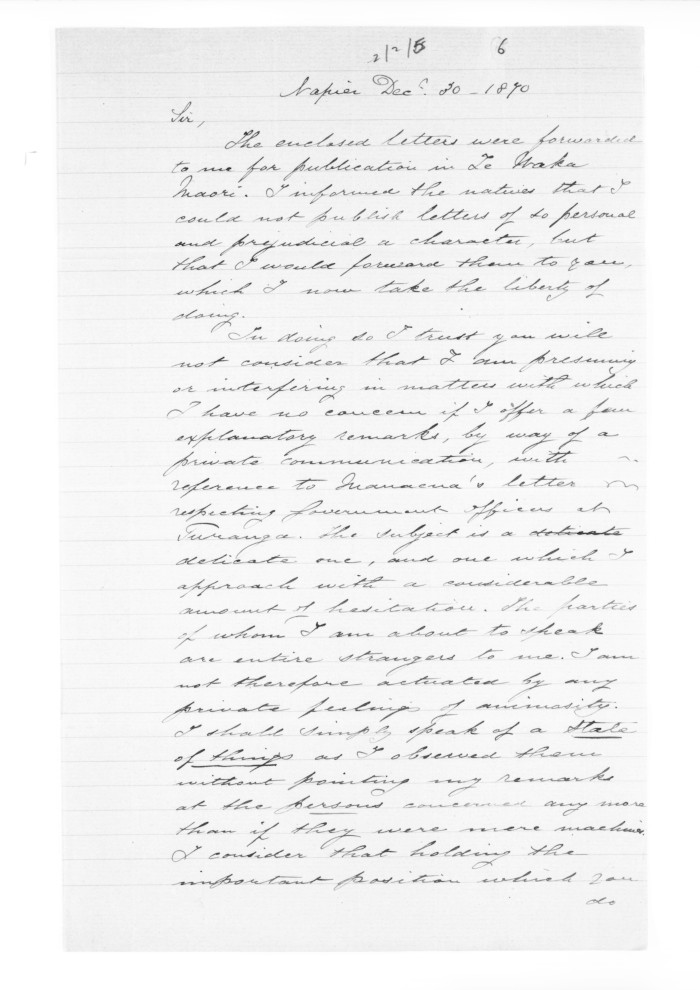 2/2/5 6
Napier Decr. 30 - 1870
Sir,
The enclosed letters were forwarded
to me for publication in Te Waka
Maori. I informed the natives that I
could not publish letters of so personal
and prejudicial a character, but
that I would forward them to you,
which I now take the liberty of
doing.
In doing so I trust you will
not consider that I am presuming
or interfering in matters with which
I have no concern if I offer a few
explanatory remarks, by way of a
private communication, with
reference to Manaena's letter
respecting Government Officers at
Turanga. The subject is a delicate
delicate one, and one which I
approach with a considerable
amount of hesitation. The parties
of whom I am about to speak
are entire strangers to me. I am
not therefore actuated by any
private feelings of animosity.
I shall simply speak of a state
of things as I observed them
without pointing my remarks
at the persons concerned any more
than if they were mere machines.
I consider that holding the
important position which you
do